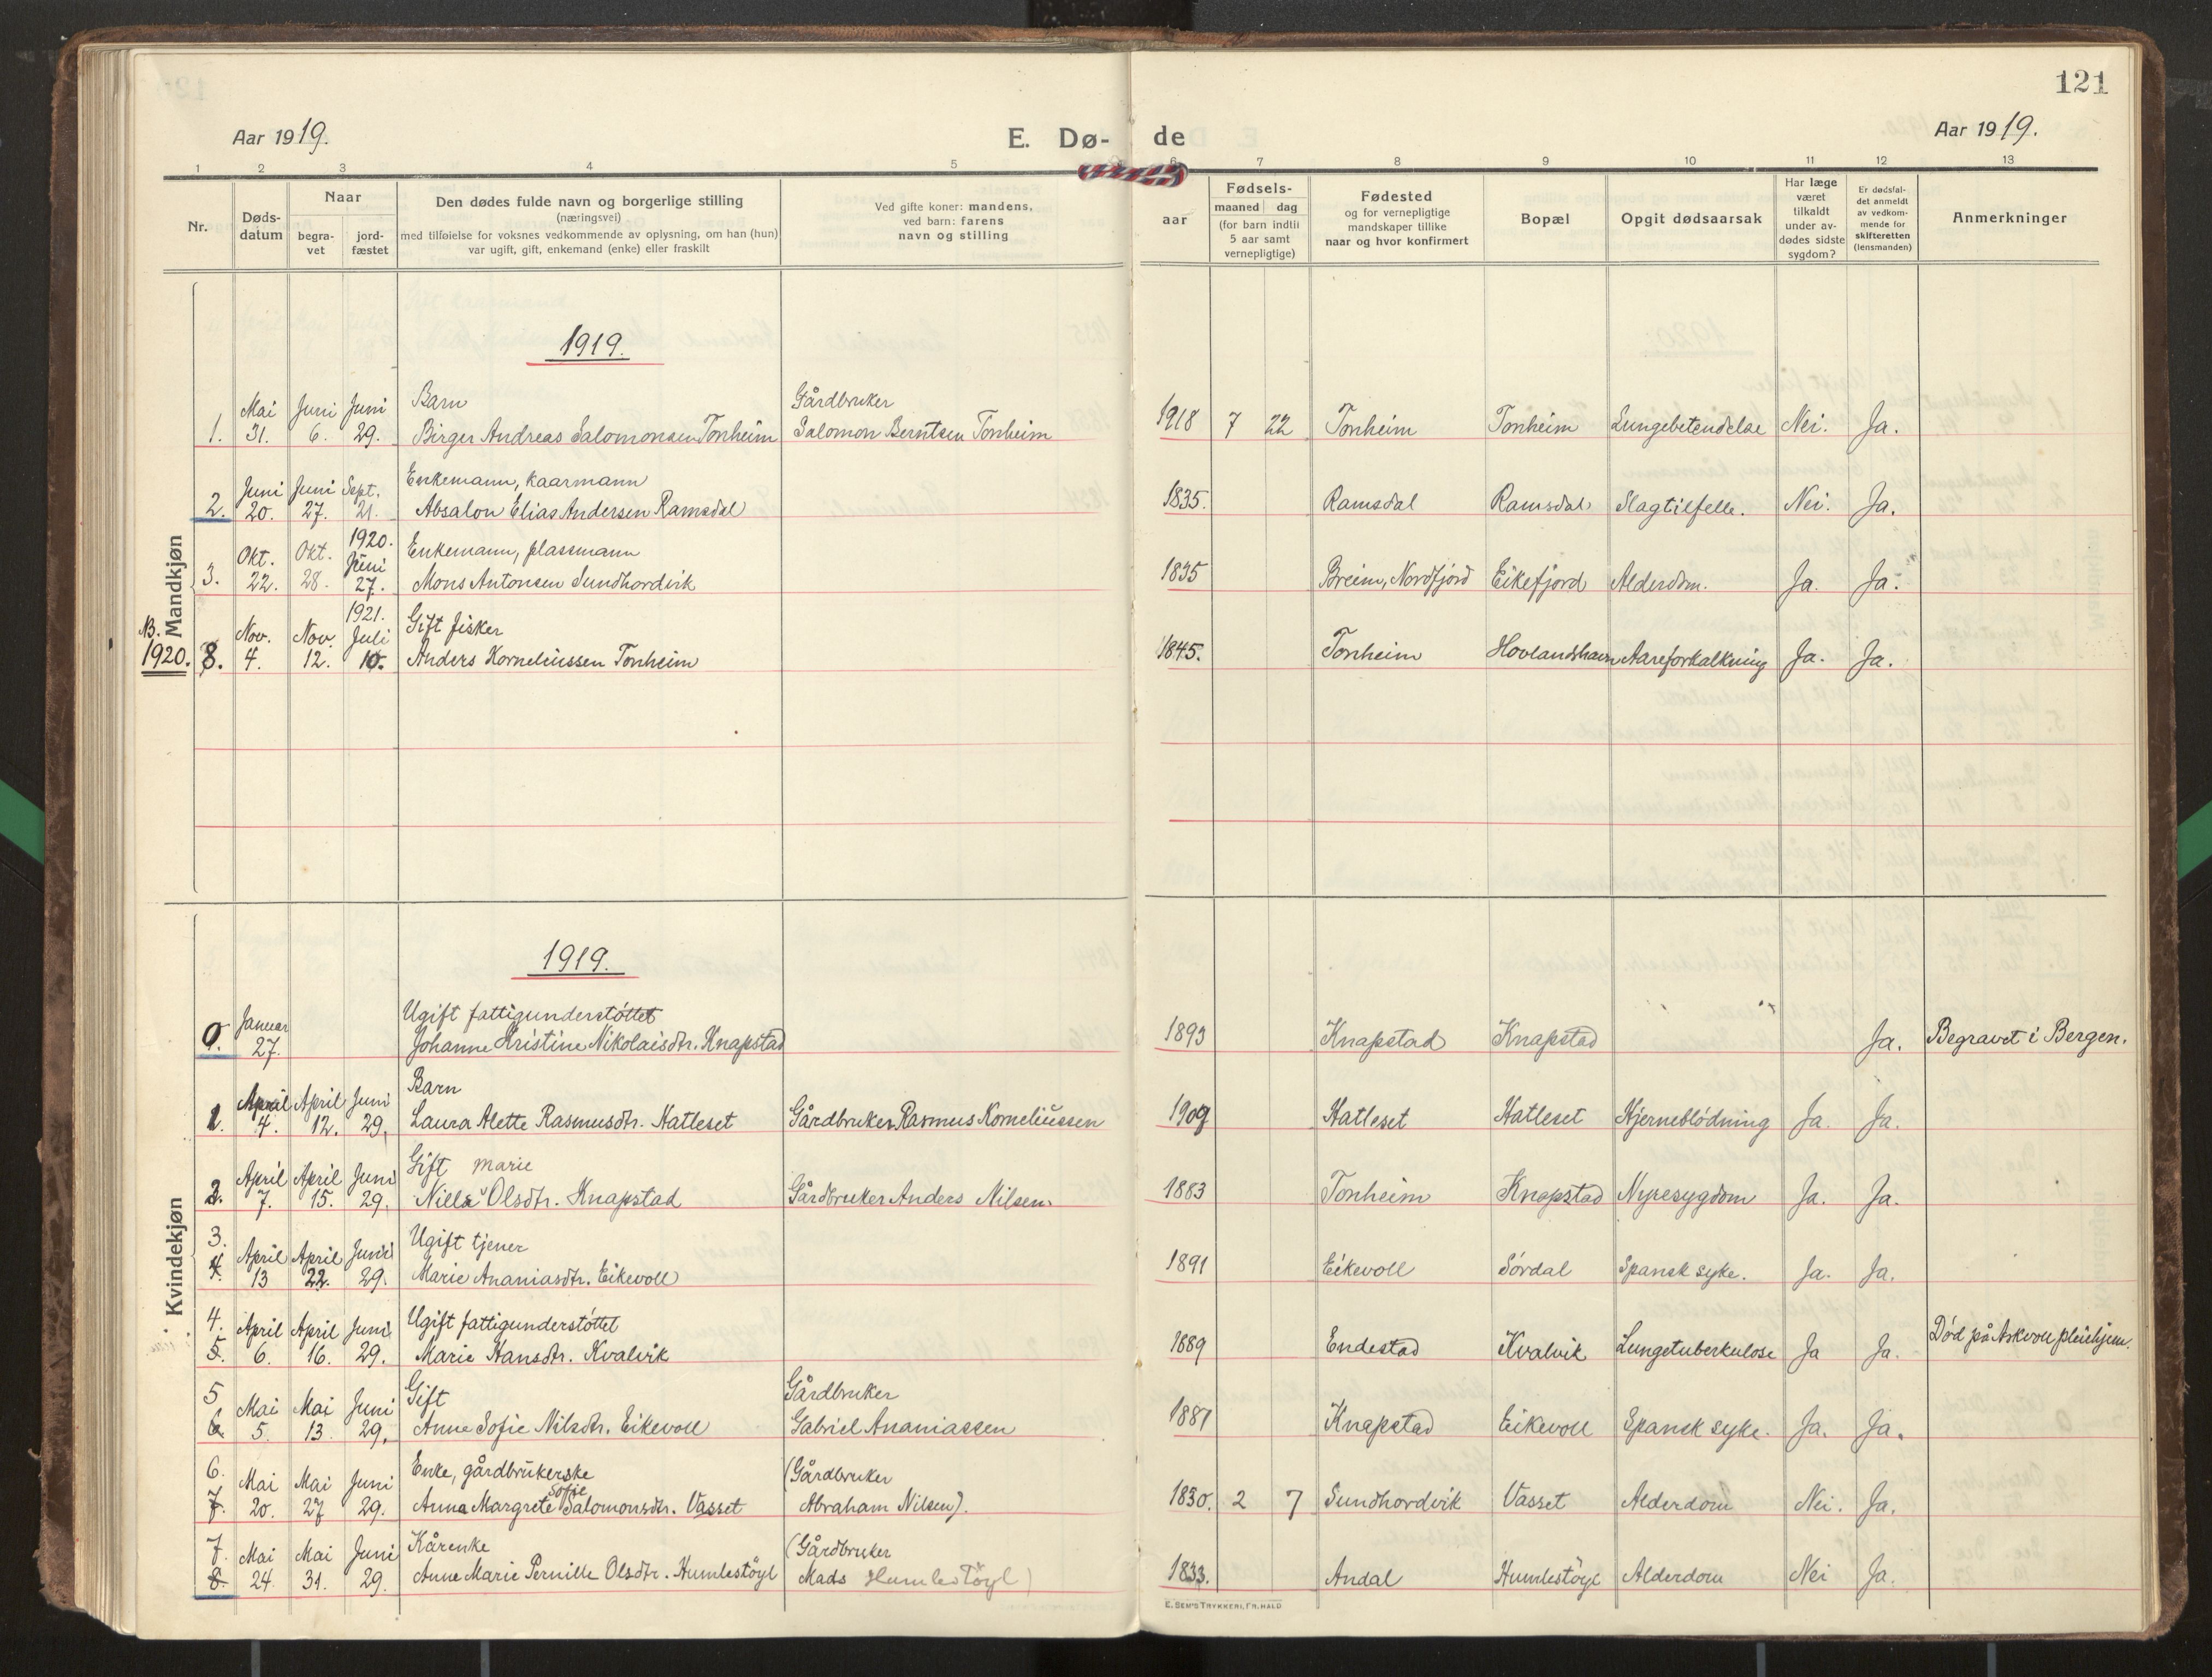 121
Aar 1919.
E. Dø-
de
Aar 1919.
1 2 3 4 5 6 7 8 9 10 11 12 13
Nr.
Døds-
datum
Naar
begra-
vet
jord-
fæstet
Den dødes fulde navn og borgerlige stilling
(næringsvei)
med tilføielse for voksnes vedkommende av oplysning, om han (hun)
var ugift, gift, enkemand (enke) eller fraskilt
Ved gifte koner: mandens,
ved barn: farens
navn og stilling
Fødsels-
aar
maaned dag
(for barn indtil
5 aar samt
vernepligtige)
Fødested
og for vernepligtige
mandskaper tillike
naar og hvor konfirmert
Bopæl
Opgit dødsaarsak
Har læge
været
tilkaldt
under av-
dødes sidste
sygdom?
Er dødsfal-
det anmeldt
av vedkom-
mende for
skifteretten
(lensmanden)
Anmerkninger
Mandkjøn
1919.
Mai Juni Juni Barn Gårdbruker
1. 31. 6. 29. Birger Andreas Salomonsen Tonheim Salomon Berntsen Tonheim 1918 7 22 Tonheim Tonheim Lungebetendelse Nei. Ja.
Juni Juni Sept. Enkemann, kaarmann
2. 20. 27. 21. Absalon Elias Andersen Ramsdal 1835. Ramsdal Ramsdal Slagtilfelle. Nei. Ja.
1920.
Okt. Okt. Juni Enkemann, plassmann
3. 22. 28. 27. Mons Antonsen Sundhordvik 1835 Breim, Nordfjord Eikefjord Alderdom. Ja. Ja.
1921.
NB. Nov. Nov. Juli Gift fisker
1920. 8. 4. 12. 10. Anders Korneliussen Tonheim 1845. Tonheim Hovlandshavn Aareforkalkning Ja. Ja.
Kvindekjøn
1919.
Januar Ugift fattigunderstøttet
0. 27. Johanne Kristine Nikolaisdtr. Knapstad 1893 Knapstad Knapstad Ja. Begravet i Bergen.
April April Juni Barn
1. 4. 12. 29. Laura Alette Rasmusdtr. Hatleset Gårdbruker Rasmus Korneliussen 1909 Hatleset Hatleset Hjerneblödning Ja. Ja.
April April Juni Gift Marie
2. 7. 15. 29. Nilla Olsdtr. Knapstad Gårdbruker Anders Nilsen. 1883 Tonheim Knapstad Nyresygdom Ja. Ja.
3. April April Juni Ugift tjener
4. 13 22. 29. Marie Ananiasdtr. Eikevoll 1891 Eikevoll Sördal Spansk syke. Ja. Ja.
4. April April Juni Ugift fattigunderstöttet
5. 6. 16. 29. Marie Hansdtr. Kvalvik 1889 Endestad Kvalvik Lungetuberkulose Ja Ja. Död på Askvoll pleiehjem.
5 Mai Mai Juni Gift Gårdbruker
6. 5. 13. 29. Anne Sofie Nilsdtr. Eikevoll Gabriel Ananiassen 1887 Knapstad Eikevoll Spansk syke. Ja. Ja.
6. Mai Mai Juni Enke, gårdbrukerske (Gårdbruker
7. 20. 27 29. Anna Margrete Sofie Salomonsdtr. Vasset Abraham Nilsen). 1830. 2 7 Sundhordvik Vasset Alderdom Nei. Ja.
7. Mai Mai Juni Kårenke (Gårdbruker
8. 24. 31. 29. Anne Marie Pernille Olsdtr. Humlestöyl Mads Humlestöyl) 1833. Andal Humlestöyl Alderdom Nei Ja.
E. SEM'S TRYKKERI, FR.HALD